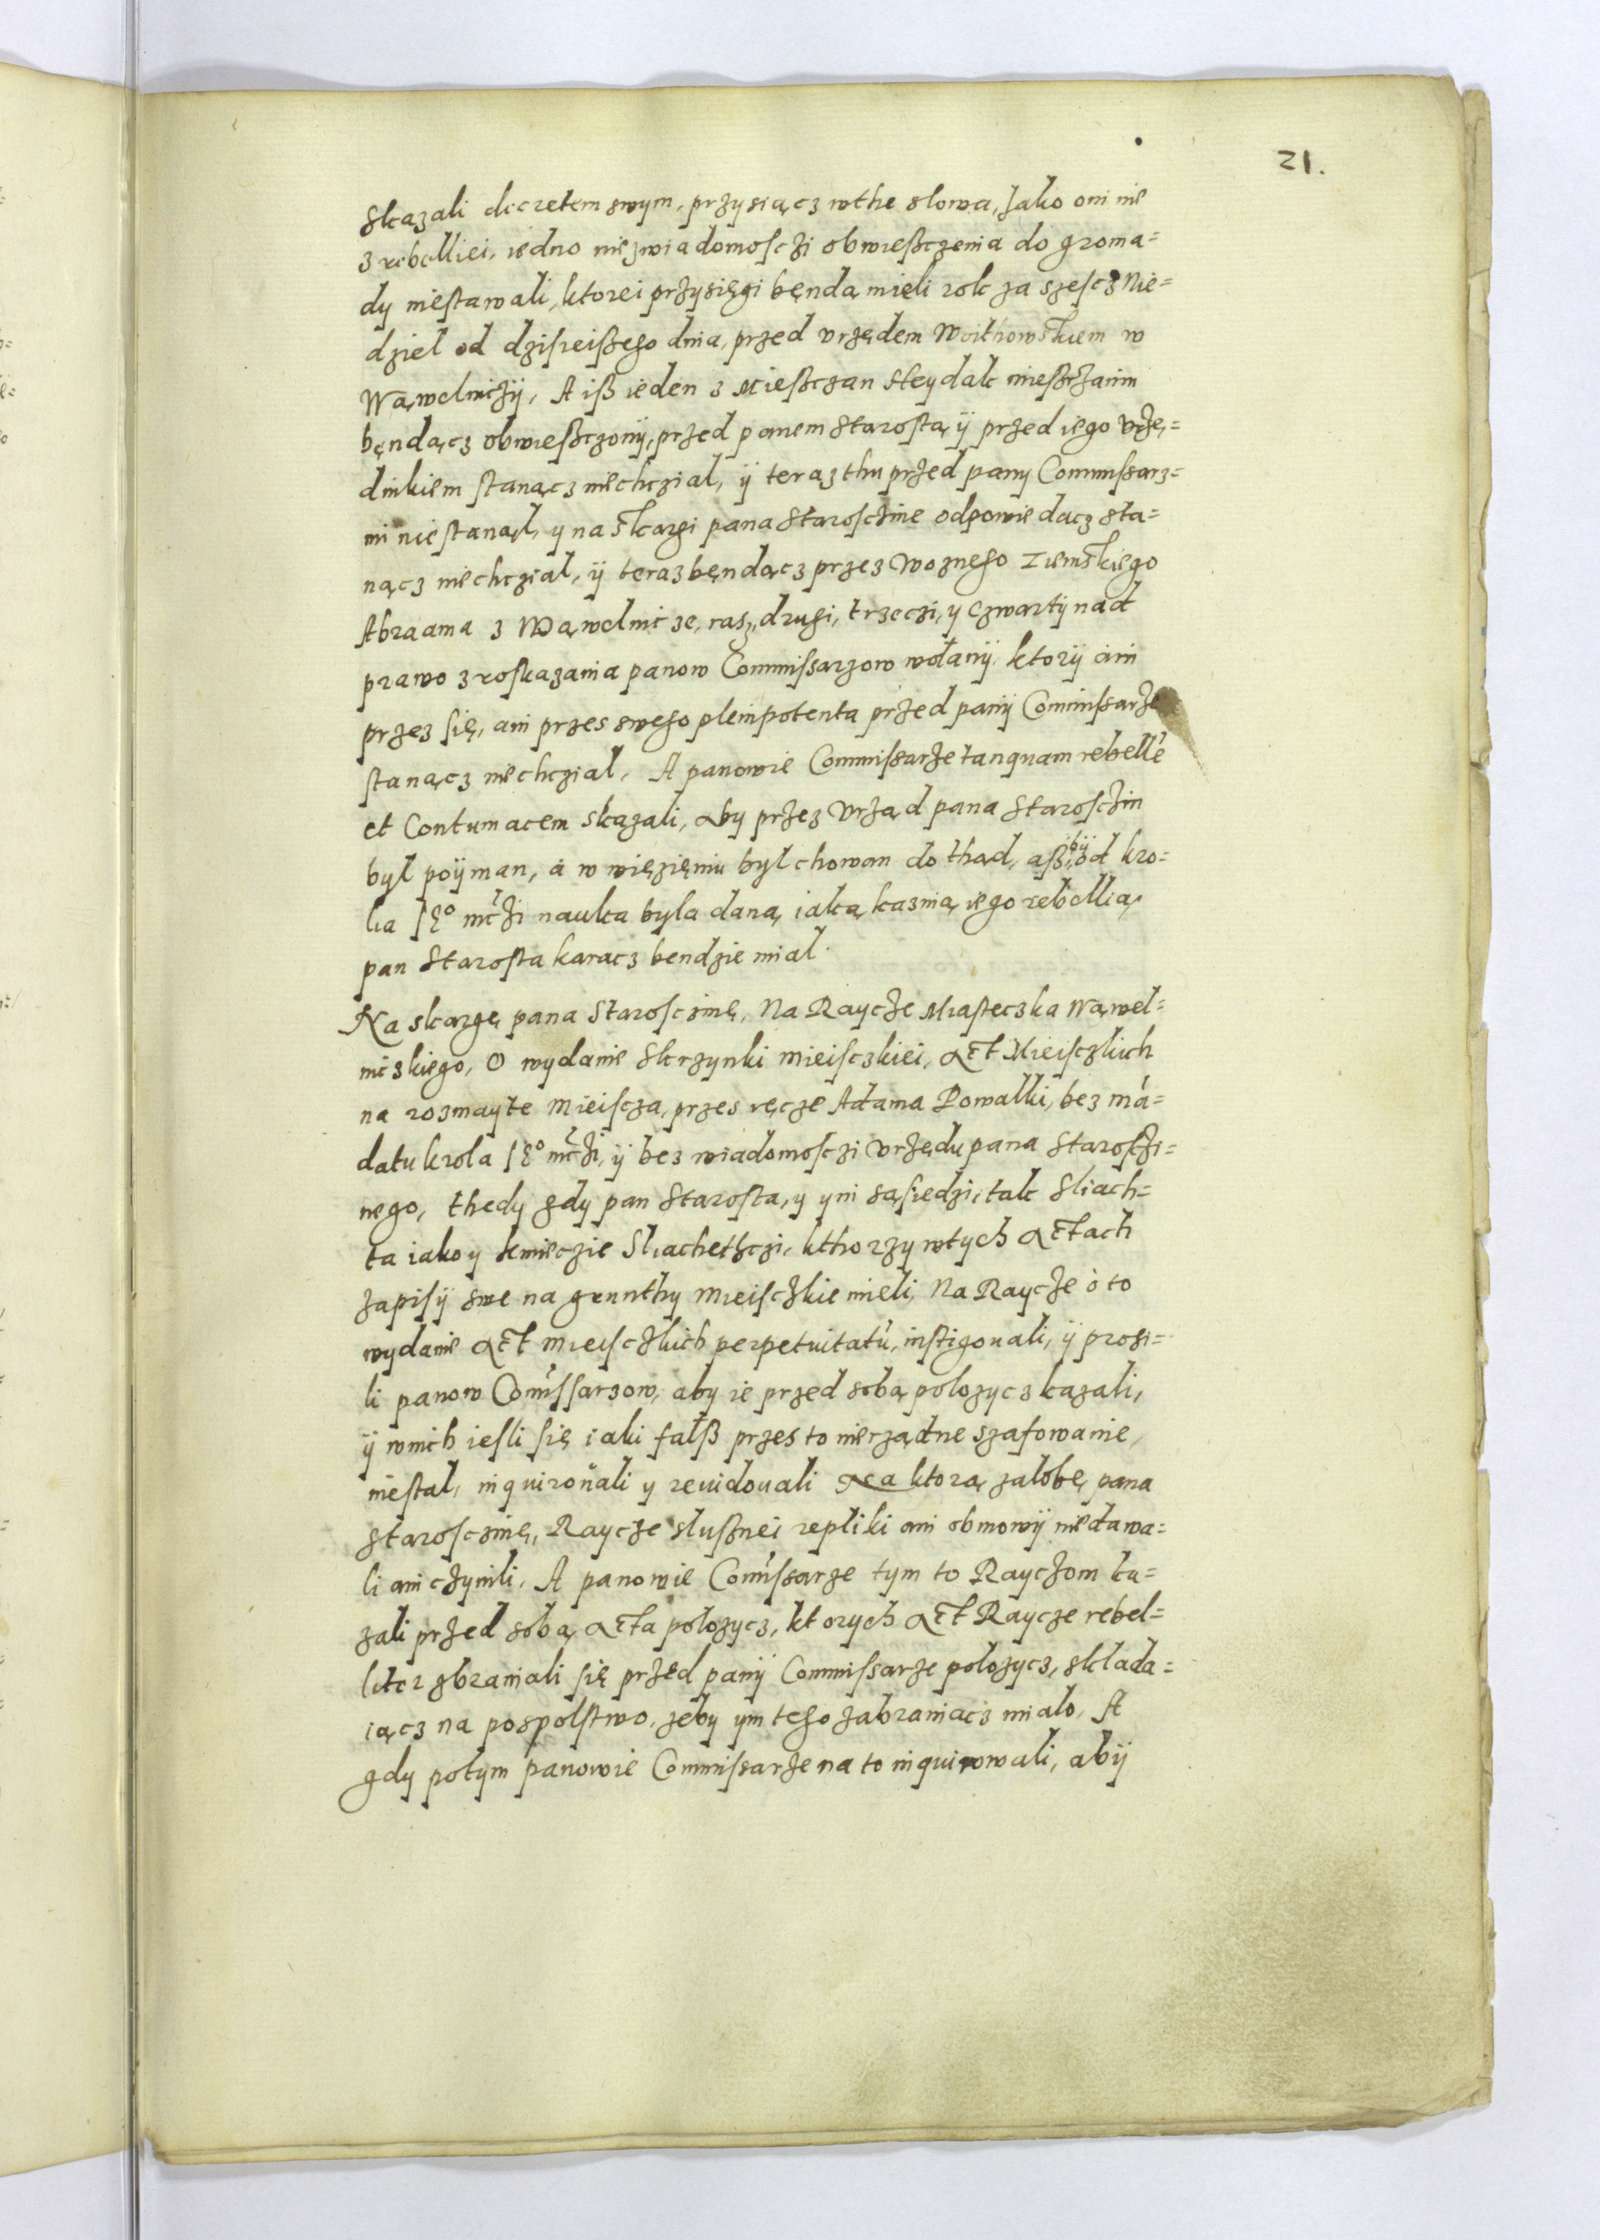 21.
Skazali decretem swym, przysiącz wthe slowa, Jako oni nie
z rebelliei, iedno niezwiadomosczi obwiesczenia do groma=
dy niestawali, ktorei przysięgi bęndą mieli rok za szescz Nie=
dziel od dzisieiszego dnia, przed vrzędem Woithowskiem w
Wąwelniczÿ, A iß ieden z Miesczan Steydak mieszczanin
bęndącz obwiesczonÿ, przed panem Starostą ÿ przed iego vrzę=
dnikiem stanącz niechczial, ÿ teraz thu przed panÿ Commissarz=
mi nie stanąl, y na skargi pana Starosczine odpowiedacz sta=
nącz niechczial, ÿ teraz bęndącz przez woznego Ziemskiego
Abraama z Wąwelnicze, raz, drugi, trzeczi, y czwartÿ nad
prawo z roskazania panow Commissarzow wołanÿ, ktorÿ ani
przez się, ani przes swego plenipotenta przed panÿ Commissarze
stanącz niechczial, A panowie Commissarze tanquam rebellē
et Contumacem skazali, aby przez vrząd pana Starosczin
był poÿman, a w więzięniu byl chowan do thąd, aßbÿ od kro=
lia Jeº mczi nauka byla daną, iaką kaznią iego rebellią
pan Starosta karacz bendzie mial.
Na skargę pana Starosczinę, Na Raycze Miasteczka Wąwel=
niczkiego, O wydanie Skrzynki mieisczkiei, Act Mieisczkich
na rozmayte mieiscza, przes ręcze Adama Powalki, bez mā=
datu krola Jeº mczi, ÿ bez wiadomosczi vrzędu pana Starosczi=
nego, thedy gdy pan Starosta, y yni sąsiedzi, tak Sliach=
ta iako y kmieczie Sliachethczi, kthorzy wtych Actach
zapisÿ swe na grunthy mieisczkie mieli, Na Raycze o to
wydanie Act mieisczkich perpetuitatū, instigouali, ÿ prosi=
li panow Comissarzow, aby ie przed sobą polozycz kazali,
ÿ wnich iesli się iaki falß przes to nierządne szafowanie
niestal, inquirouali y reuidouali Na ktorą zalobę pana
Starosczinę, Raycze slusznei repliki ani obmowÿ niedawa=
li ani czynili, A panowie Comissarze tym to Rayczom ka=
zali przed sobą Acta polozycz, ktorych Act Raycze rebel=
liter zbraniali się przed panÿ Commissarze polozycz, sklada=
iącz na pospolstwo, zeby ym tego zabraniacz mialo, A
gdy potym panowie Commissarze na to inquirowali, abÿ